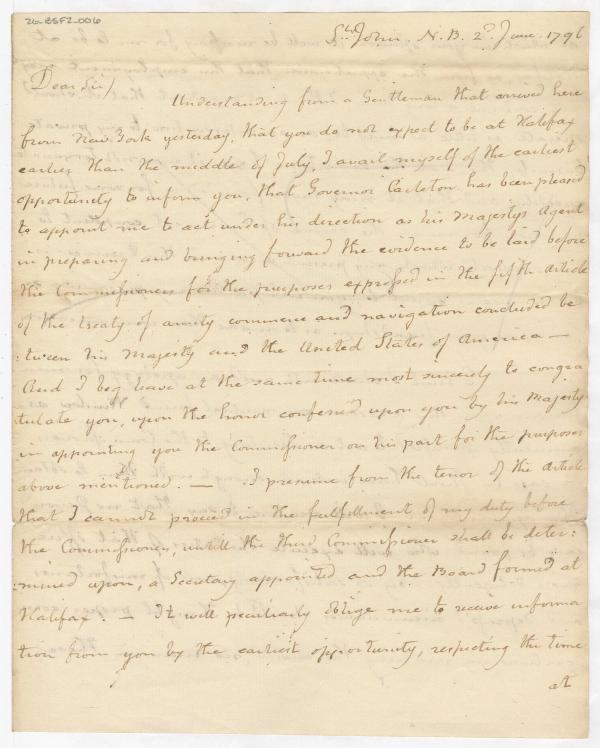 26-BSF2-006
St. John. N.B. 2d. June. 1796
Dear Sir/
Understanding from a Gentleman that arrived here
from New York yesterday, that you do not expect to be at Halifax
earlier than the middle of July, I avail myself of the earliest
opportunity to inform you, that Governor Carleton has been pleased
to appoint me to act under his direction as his Majestys Agent
in preparing and bringing forward the evidence to be laid before
the Commissioners for the purposes expressed in the fifth article
of the treaty of amity commerce and navigation concluded be
:tween his Majesty and the United States of America —
And I beg leave at the same time most sincerely to congra
tulate you, upon the honor conferred upon you by his Majesty
in appointing you the Commissioner on his part for the purposes
above mentioned. — I presume from the tenor of the article
that I cannot proceed in the fulfillment of my duty before
the Commissioners, untill the third Commissioner shall be deter:
:mined upon, a Secretary appointed and the Board formed at
Halifax. — It will peculiarly oblige me to receive informa
tion from you by the earliest opportunity, respecting the time
at